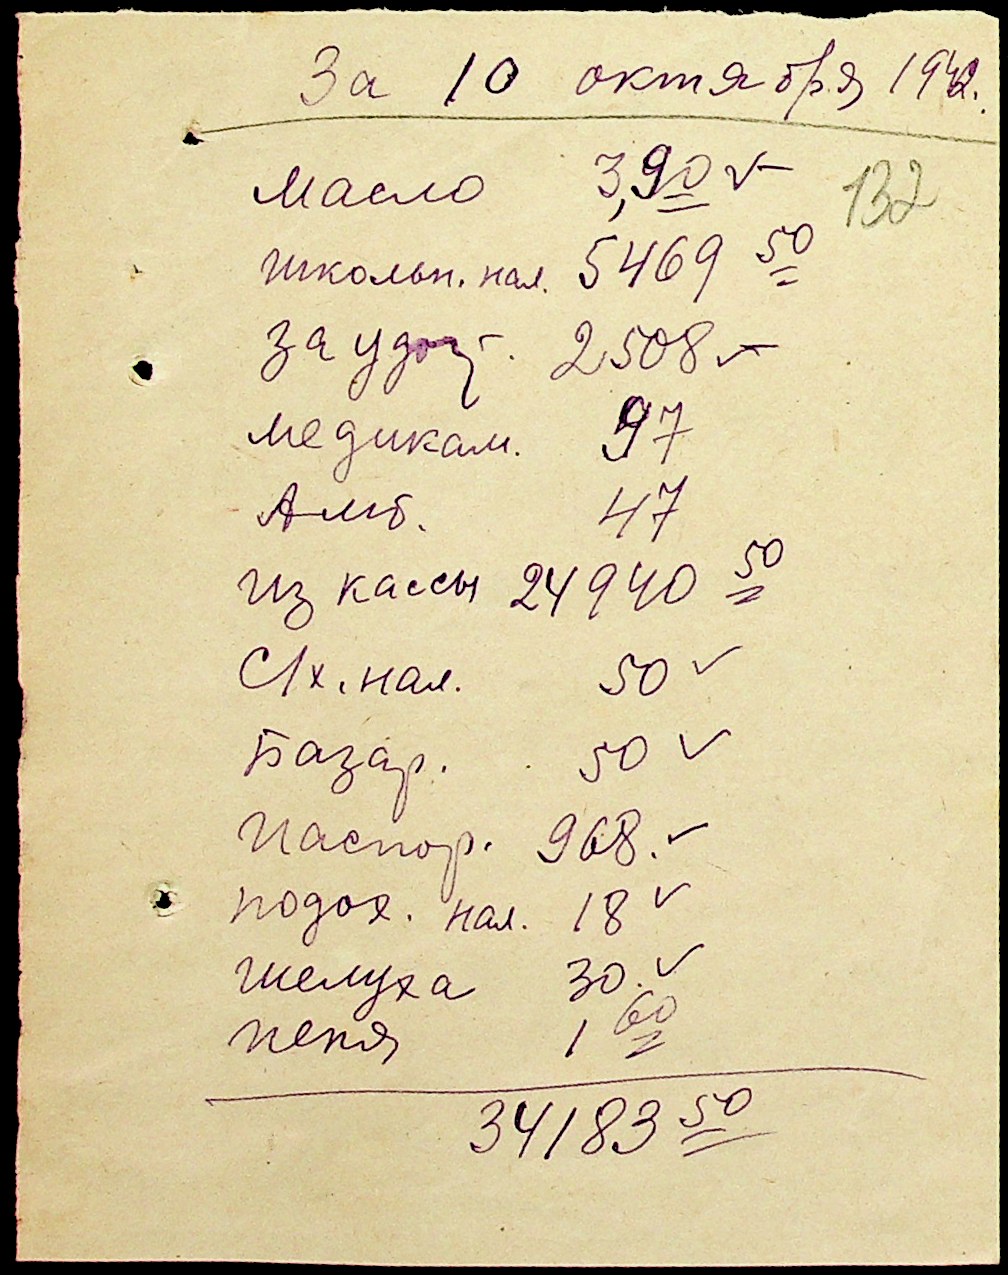 За 10 октября 1942.
132
Масло 3,90
школьн. нал. 5469 50
за удост. 2508
медикам. 97
Амб. 47
из кассы 24940 50
С/х. нал. 50
Базар. 50
Паспор. 968.
подох. нал. 18
шелуха 30.
пеня 1 60
34183 50